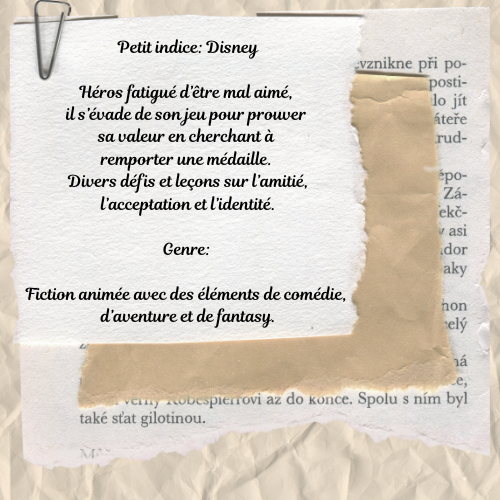 Petit indice: Disney
Héros fatigué d'être mal aimé,
il s'évade de son jeu pour prouver
sa valeur en cherchant à
remporter une médaille.
Divers défis et leçons sur l'amitié,
l'acceptation et l'identité.
Genre:
Fiction animée avec des éléments de comédie,
d'aventure et de fantasy.
vznikne při po-
posti-
lo jít
áteře
rud-
épo-
Zá-
ekč-
asi
dor
aky
non
celý
ná
ce,
verný Robespierrovi až do konce. Spolu s ním byl
také sťat gilotinou.